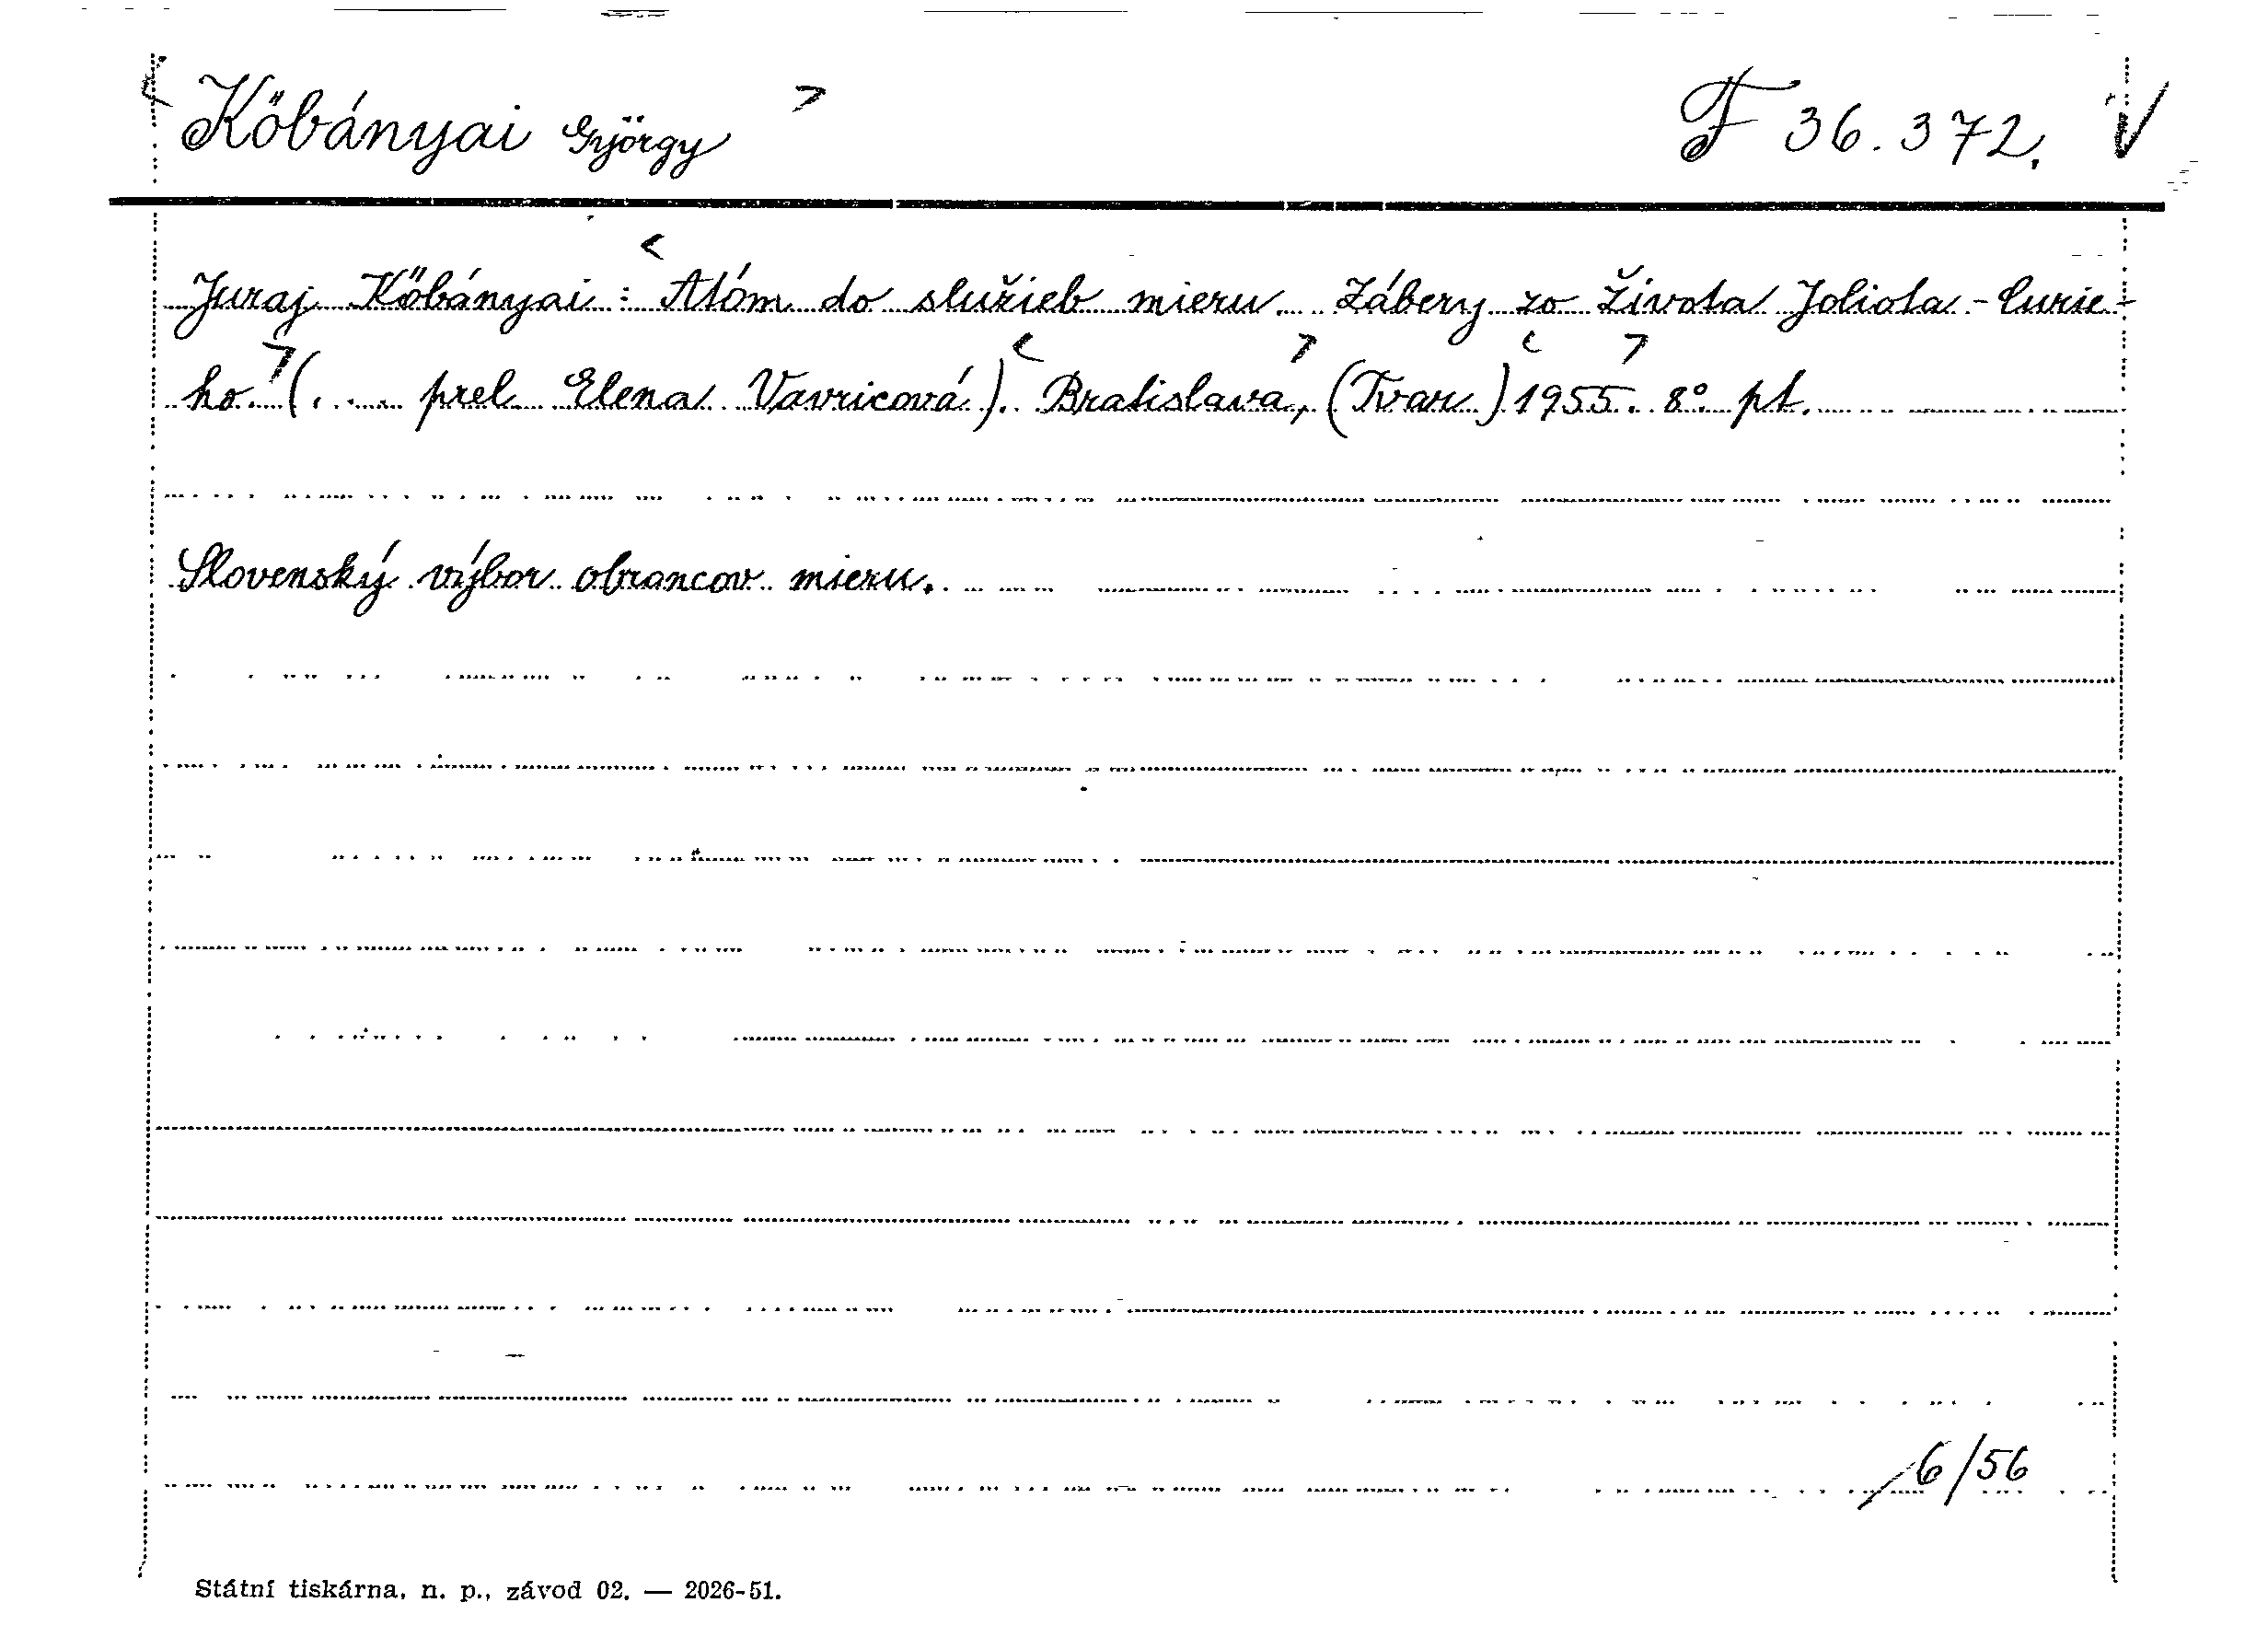 < Kőbányai György > F 36.372. V
Juraj Kőbányai: < Atóm do služieb mieru. Zábery zo života Joliota-Curie-
ho. > (. . . . prel. Elena Vavricová). < Bratislava, > (Tvar) < 1955. > 8° pt.
Slovenský výbor obrancov mieru.
6/56
Státní tiskárna, n. p., závod 02. — 2026-51.